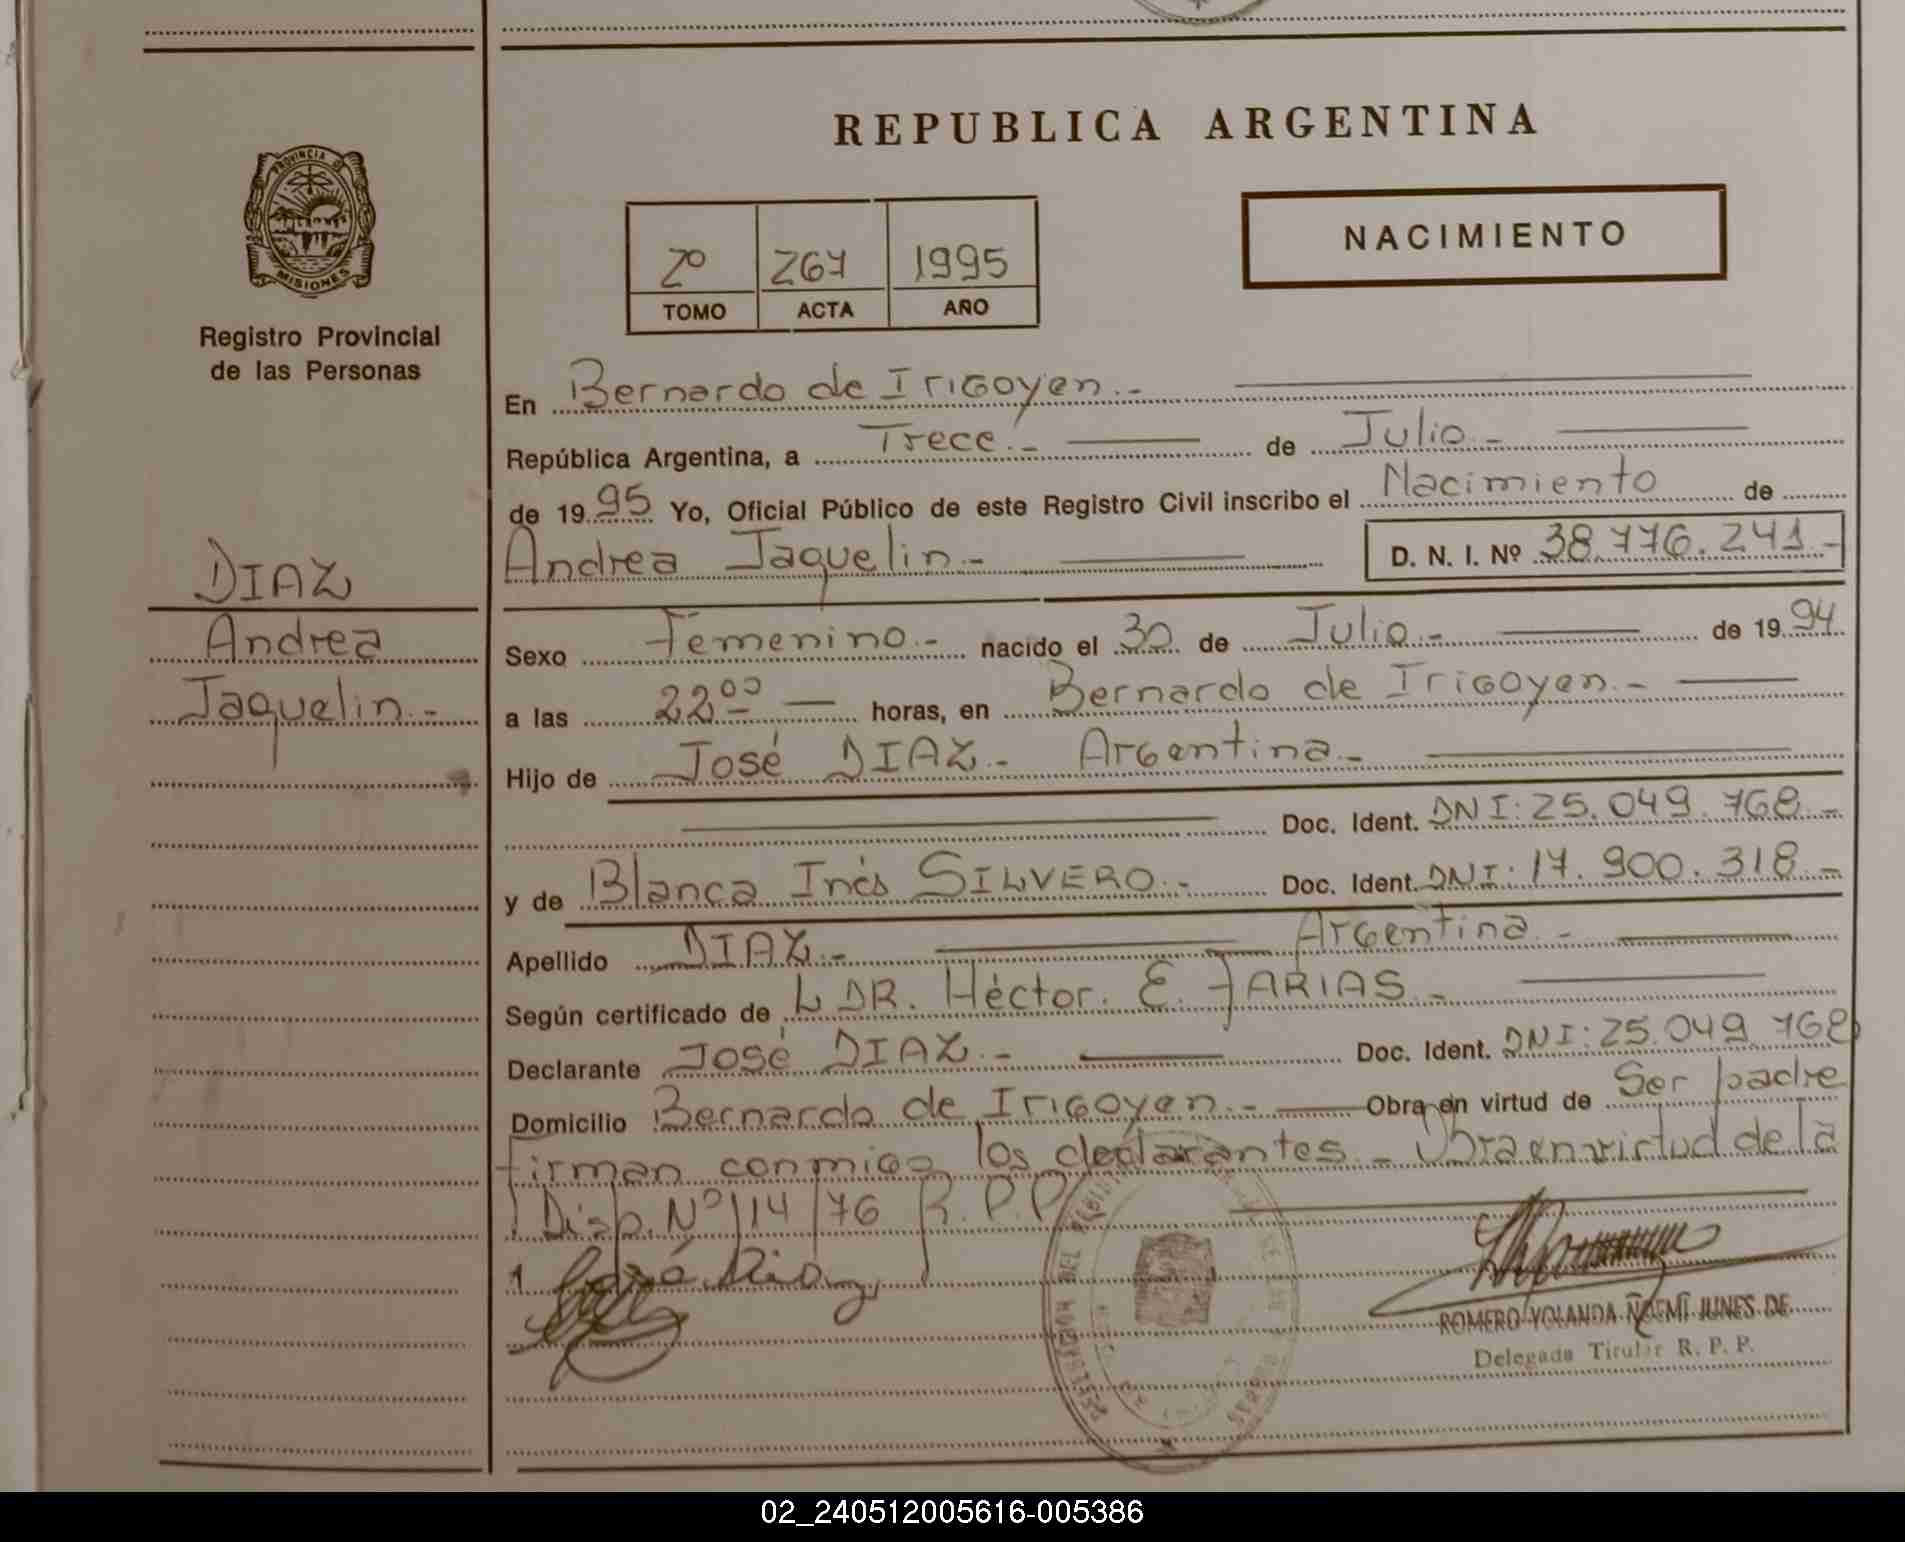 PROVINCIA DE
MISIONES
Registro Provincial
de las Personas
DIAZ
Andrea
Jaquelin.-
REPUBLICA ARGENTINA
2º 267 1995
TOMO ACTA AÑO
NACIMIENTO
En Bernardo de Irigoyen.-
República Argentina, a Trece.- de Julio.-
de 1995 Yo, Oficial Público de este Registro Civil inscribo el Nacimiento de
Andrea Jaquelin.- D. N. I. Nº 38.776.241.-
Sexo Femenino.- nacido el 30 de Julio.- de 1994
a las 22⁰⁰ horas, en Bernardo de Irigoyen.-
Hijo de José DIAZ.- Argentina.-
Doc. Ident. DNI: 25.049.768.-
y de Blanca Inés SILVERO.- Doc. Ident. DNI: 17.900.318.-
Apellido DIAZ.- Argentina.-
Según certificado de DR. Héctor. E. FARIAS.-
Declarante José DIAZ.- Doc. Ident. DNI: 25.049.768
Domicilio Bernardo de Irigoyen.- Obra en virtud de Ser padre
firman conmigo los declarantes.- Obra en virtud de la
Disp. Nº 114/76 R.P.P.
José Diaz
ROMERO YOLANDA ÑOEMI JUNES DE
Delegada Titular R. P. P.
02_240512005616-005386